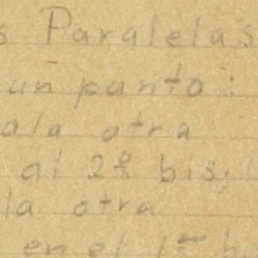 s Paralelas
un punto:
ala otra
al 2º bis,
la otra
en el 1er b